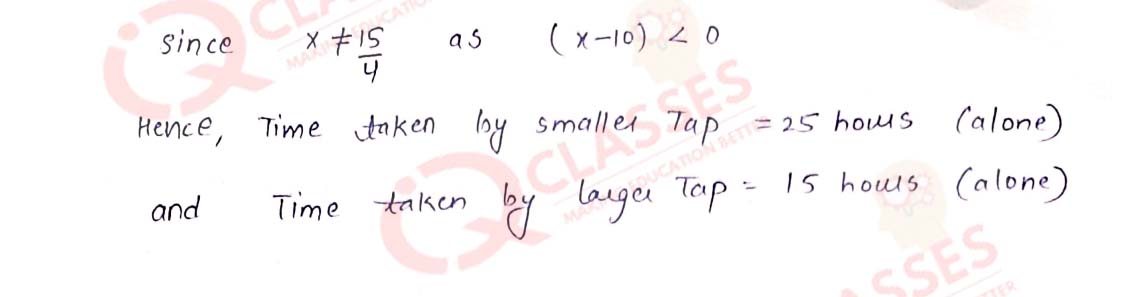 Since x ≠ 15/4 as (x-10) < 0
Hence, Time taken by smaller Tap = 25 hours (alone)
and Time taken by larger Tap = 15 hours (alone)
IQ CLASSES
MAKING EDUCATION BETTER